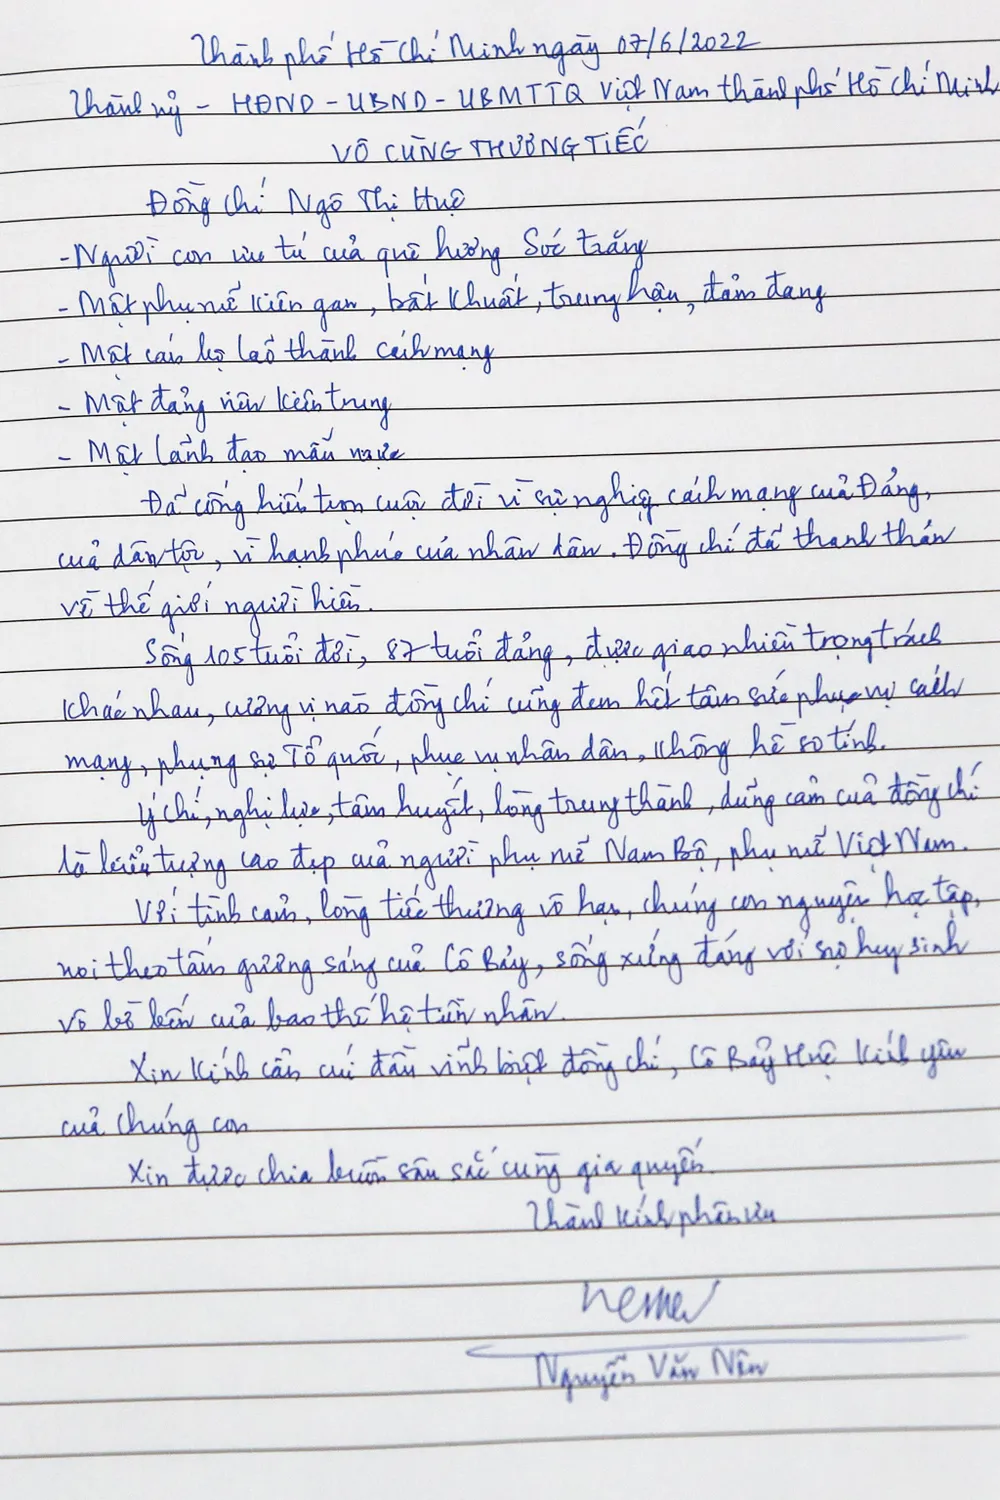 Thành phố Hồ Chí Minh ngày 07/6/2022
Thành ủy - HĐND - UBND - UBMTTQ Việt Nam thành phố Hồ Chí Minh
VÔ CÙNG THƯƠNG TIẾC
Đồng chí Ngô Thị Huệ
- Người con ưu tú của quê hương Sóc Trăng
- Một phụ nữ kiên gan, bất khuất, trung hậu, đảm đang
- Một cán bộ lão thành cách mạng
- Một đảng viên kiên trung
- Một lãnh đạo mẫu mực
Đã cống hiến trọn cuộc đời vì sự nghiệp cách mạng của Đảng,
của dân tộc, vì hạnh phúc của nhân dân. Đồng chí đã thanh thản
về thế giới người hiền.
Sống 105 tuổi đời, 87 tuổi đảng, được giao nhiều trọng trách
khác nhau, cương vị nào đồng chí cũng đem hết tâm sức phục vụ cách
mạng, phụng sự Tổ quốc, phục vụ nhân dân, không hề so tính.
Ý chí, nghị lực, tâm huyết, lòng trung thành, dũng cảm của đồng chí
là biểu tượng cao đẹp của người phụ nữ Nam Bộ, phụ nữ Việt Nam.
Với tình cảm, lòng tiếc thương vô hạn, chúng con nguyện học tập,
noi theo tấm gương sáng của Cô Bảy, sống xứng đáng với sự hy sinh
vô bờ bến của bao thế hệ tiền nhân.
Xin kính cẩn cúi đầu vĩnh biệt đồng chí, Cô Bảy Huệ kính yêu
của chúng con
Xin được chia buồn sâu sắc cùng gia quyến.
Thành kính phân ưu
Nguyễn Văn Nên